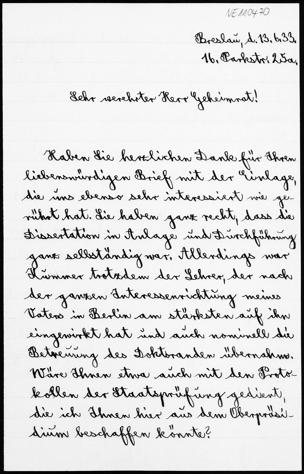 NE110470
Breslau, d. 13.6.33.
16. Parkstr. 25a.
Sehr verehrter Herr Geheimrat!
Haben Sie herzlichen Dank für Ihren
liebenswürdigen Brief mit der Einlage,
die uns ebenso sehr interessiert wie ge-
rührt hat. Sie haben ganz recht, dass die
Dissertation in Anlage und Durchführung
ganz selbständig war. Allerdings war
Kummer trotzdem der Lehrer, der nach
der ganzen Interessenrichtung meines
Vaters in Berlin am stärksten auf ihn
eingewirkt hat und auch nominell die
Betreuung des Doktoranden übernahm.
Wäre Ihnen etwa auch mit den Proto-
kollen der Staatsprüfung gedient,
die ich Ihnen hier aus dem Oberpräsi-
dium beschaffen könnte?